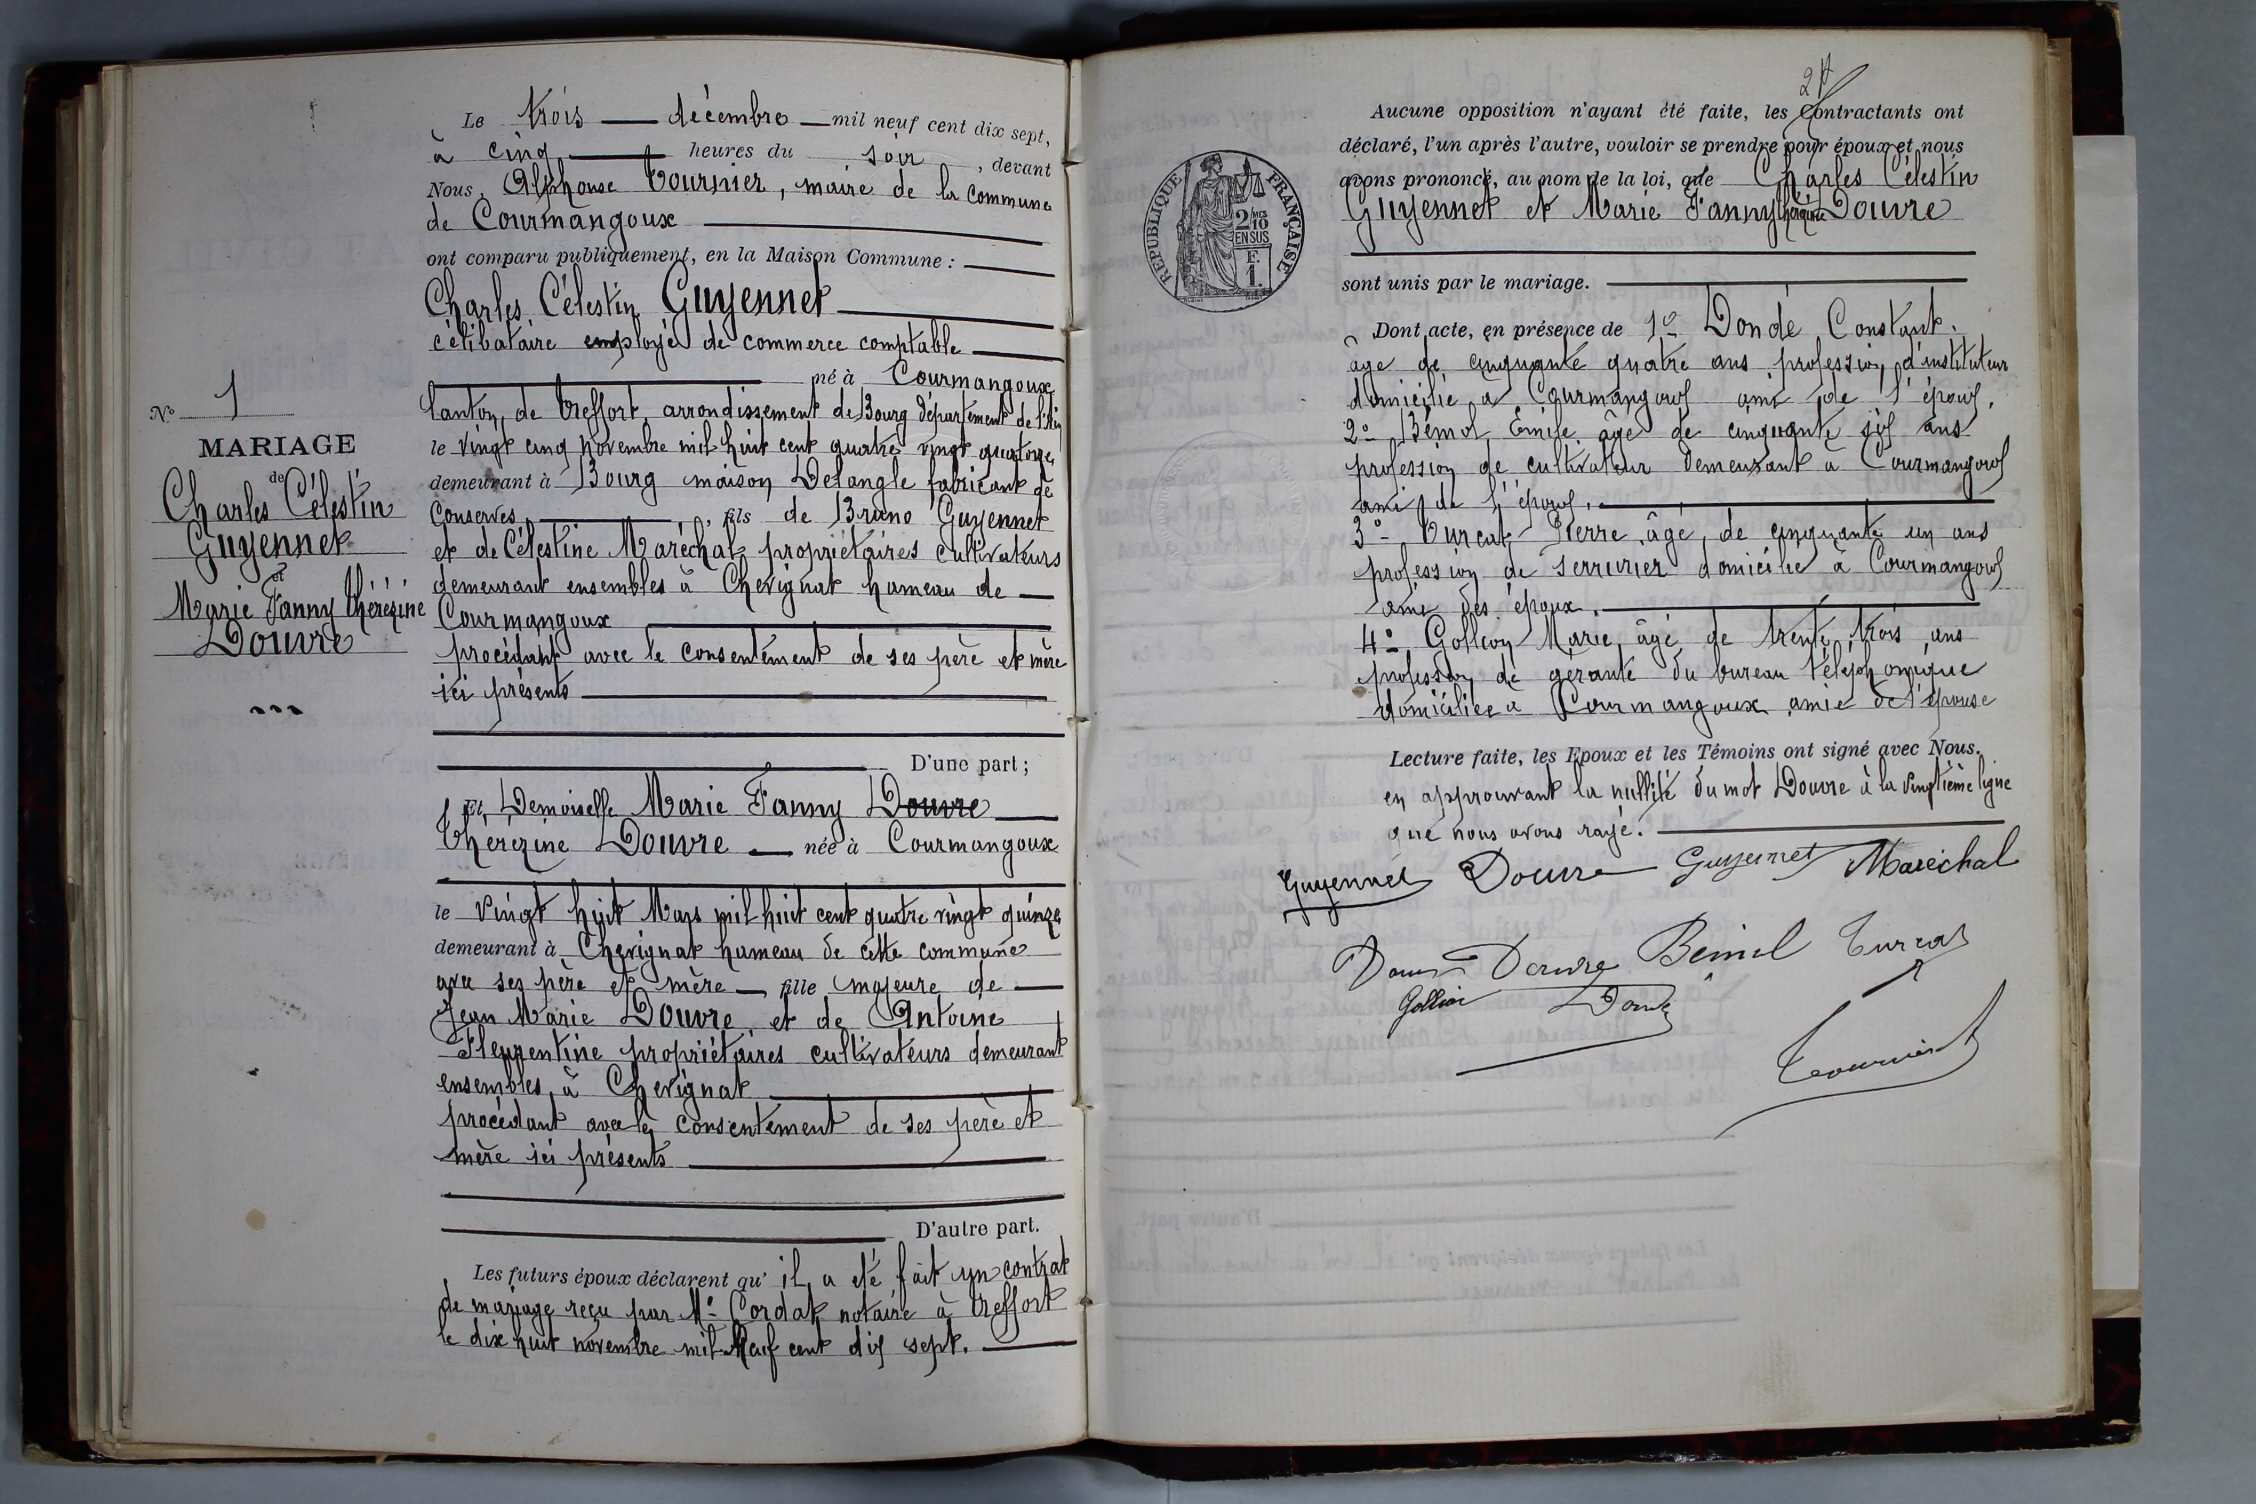 Le trois décembre mil neuf cent dix sept,
à cinq heures du soir, devant
Nous, Alphonse Tournier, maire de la commune
de Courmangoux
ont comparu publiquement, en la Maison Commune :
Charles Célestin Guyennet
célibataire employé de commerce comptable
né à Courmangoux
Canton de Treffort, arrondissement de Bourg département de l'Ain
le vingt cinq novembre mil huit cent quatre vingt quatorze
demeurant à Bourg maison Delangle fabricant de
Conserves, fils de Bruno Guyennet
et de Célestine Maréchal propriétaires cultivateurs
demeurant ensembles à Chevignat hameau de
Courmangoux
procédant avec le consentement de ses père et mère
ici présents
D'une part ;
Et, Demoiselle Marie Fanny Douvre
Thérézine Douvre née à Courmangoux
le vingt huit Mars mil huit cent quatre vingt quinze
demeurant à Chevignat hameau de cette commune
avec ses père et mère fille majeure de
Jean Marie Douvre et de Antoine
Fleurentine propriétaires cultivateurs demeurant
ensembles à Chevignat
procédant avec le consentement de ses père et
mère ici présents
D'autre part.
Les futurs époux déclarent qu'il a été fait un contrat
de mariage reçu par Me Cordat notaire à Treffort
le dix huit novembre mil Neuf cent dix sept.
No 1
MARIAGE
de
Charles Célestin
Guyennet
et
Marie Fanny Thérézine
Douvre
Aucune opposition n'ayant été faite, les Contractants ont
déclaré, l'un après l'autre, vouloir se prendre pour époux et nous
avons prononcé, au nom de la loi, que Charles Célestin
Guyennet et Marie Fanny Thérézine Douvre
sont unis par le mariage.
Dont acte, en présence de 1o Dondé Constant.
âge de cinquante quatre ans profession d'instituteur
domicilié à Courmangoux ami de l'époux.
2o Bémol Emile âge de cinquante six ans
profession de cultivateur demeurant à Courmangoux
ami de l'époux.
3o Turcat Pierre âgé de cinquante un ans
profession de serrurier domicilié à Courmangoux
ami des époux.
4o Gollion Marie âgé de trente trois ans
profession de gérante du bureau téléphonique
domiciliée à Courmangoux amie de l'épouse
Lecture faite, les Epoux et les Témoins ont signé avec Nous.
en approuvant la nullité du mot Douvre à la vingtième ligne
que nous avons rayé.
Guyennet Douvre Guyennet Maréchal
Douvre Bémol Turcat
Gollion Dondé
Tournier
RÉPUBLIQUE FRANÇAISE
2/10
EN SUS
F.
1.